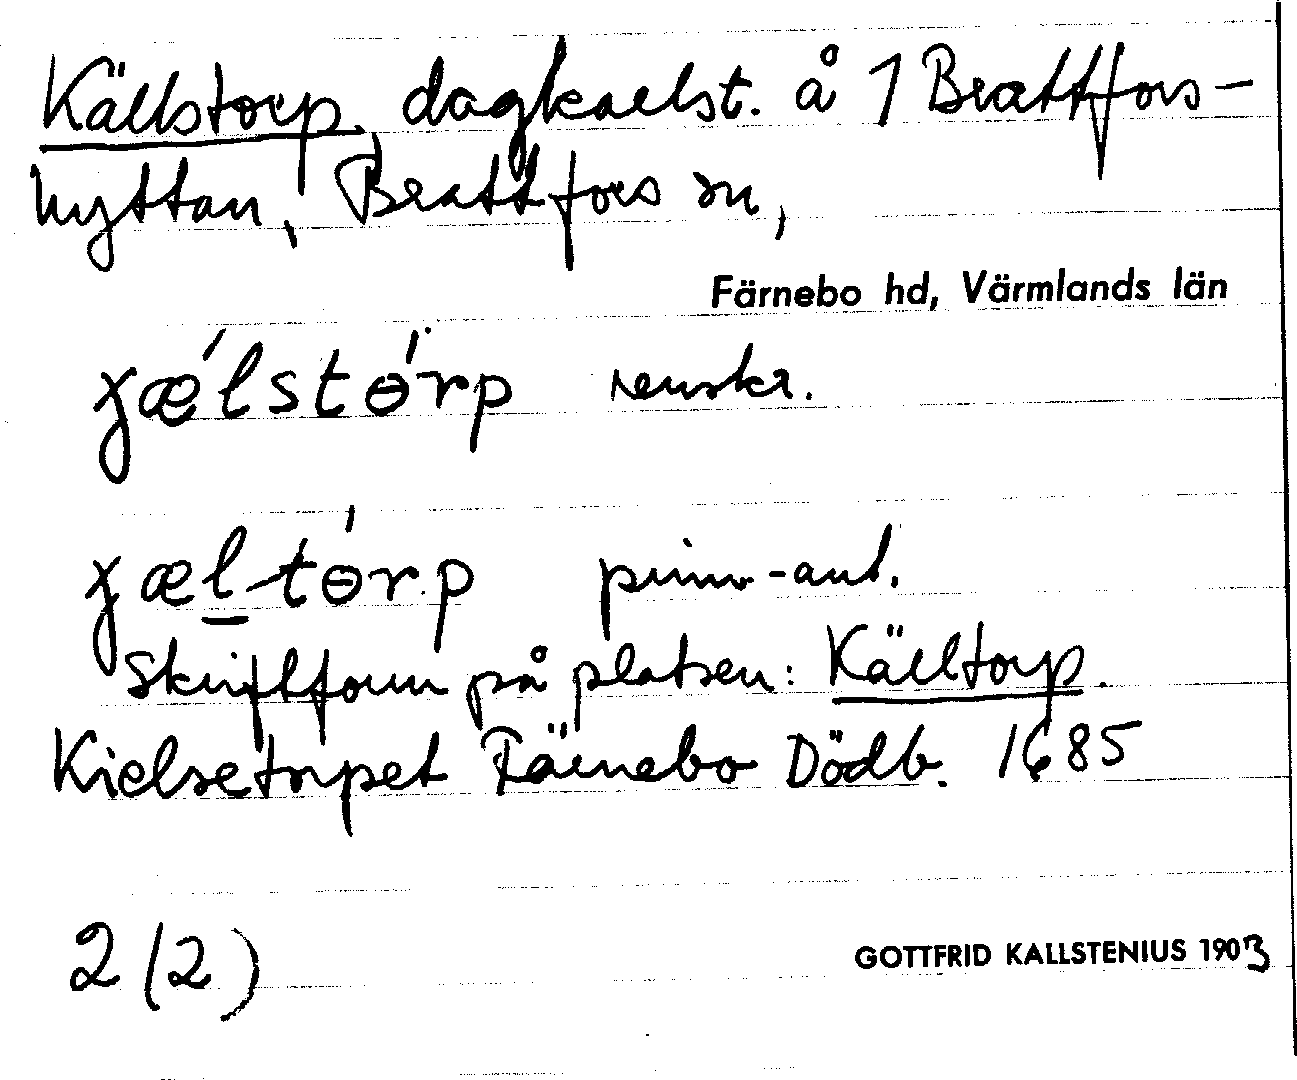 Källstorp, dagkarlst. å 1 Brattfors-
hyttan, Brattfors sn,
Färnebo hd, Värmlands län
χǽlstɵ́rp renskr.
χæl̲-tɵ́rp prim-ant.
Skriftform på platsen: Källtorp.
Kielsetorpet Färnebo Dödb. 1685
2 (2)
GOTTFRID KALLSTENIUS 1903